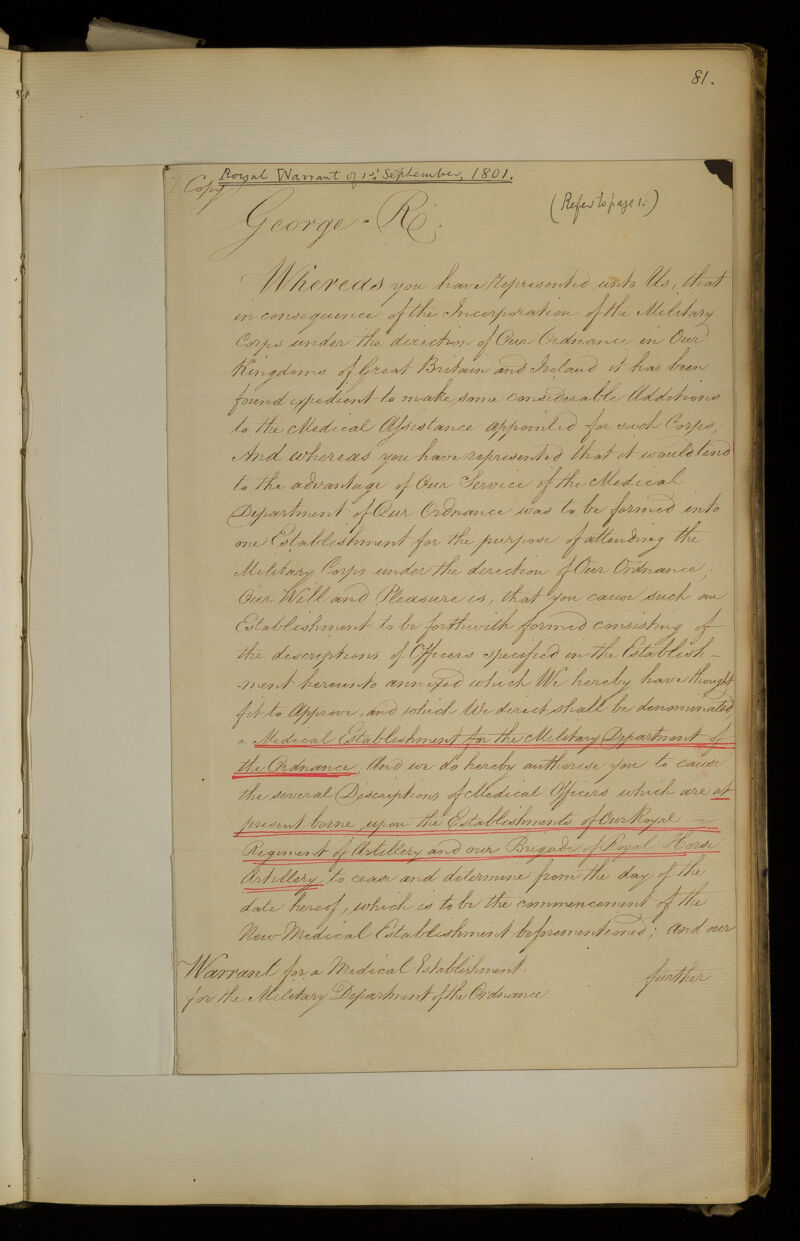 81.
Royal Warrant of 1st. September, 1801.
(Copy)
(Refer to page 1.)
George. R.
Whereas you have represented unto Us, that
in consequence of the Incorporation of the Military
Corps under the direction of Our Ordnance in Our
Kingdoms of Great Britain and Ireland it has been
found expedient to make some considerable Additions
to the Medical Assistance appointed for such Corps;
And whereas you have represented that it would tend
to the advantage of Our Service if the Medical
Department of Our Ordnance was to be formed into
one Establishment for the purpose of attending the
Military Corps under the direction of Our Ordnance;
Our Will and Pleasure is, that you cause such an
Establishment to be forthwith formed consisting of
the descriptions of Officers specified in the Establish-
-ment hereunto annexed which We hereby have thought
fit to Approve, and which We direct shall be denominated
a Medical Establishment for the Military Department of
the Ordnance; And we do hereby authorise you to cause
the several Descriptions of Medical Officers which are at
present borne upon the Establishments of Our Royal
Regiment of Artillery and our Brigade of Royal Horse
Artillery, to cease and determine from the day of the
date hereof, which is to be the commencement of the
New Medical Establishment beforementioned; And our
further
Warrant for a Medical Establishment
for the Military Department of the Ordnance